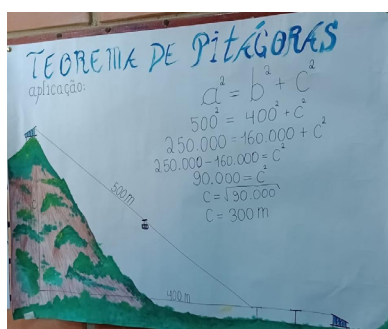 TEOREMA DE PITÁGORAS
aplicação:
a² = b² + c²
500² = 400² + c²
250.000 = 160.000 + c²
250.000 - 160.000 = c²
90.000 = c²
c = √90.000
c = 300 m
500 m
400 m